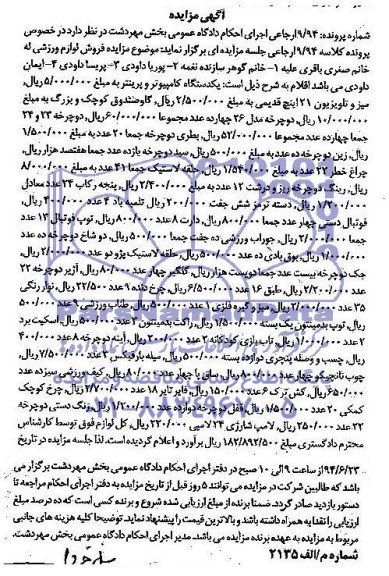 آگهی مزایده
شماره پرونده: ۹/۹۴ ارجاعی اجرای احکام دادگاه عمومی بخش مهردشت در نظر دارد در خصوص
پرونده کلاسه ۹/۹۴ ارجاعی جلسه مزایده ای برگزار نماید: موضوع مزایده فروش لوازم ورزشی له
خانم صغری باقری علیه ۱- خانم گوهر سازنده نغمه ۲- پوریا داودی ۳- پریسا داودی ۴- ایمان
داودی می باشد اقلام به شرح ذیل است: یکدستگاه کامپیوتر و پرینتر به مبلغ ۵/۰۰۰/۰۰۰ ریال،
میز و تلویزیون ۲۱ اینچ قدیمی به مبلغ ۲/۵۰۰/۰۰۰ ریال، گاوصندوق کوچک و بزرگ به مبلغ
۱۰/۰۰۰/۰۰۰ ریال، دوچرخه مدل ۲۶ چهارده عدد مجموعا ۶۰/۰۰۰/۰۰۰ ریال، دوچرخه ۲۳ و ۲۴
جمعا چهارده عدد مجموعا ۵۲/۰۰۰/۰۰۰ ریال، بطری دوچرخه جمعا ۲۰ عدد به مبلغ ۱/۵۰۰/۰۰۰
ریال، زین دوچرخه ده عدد به مبلغ ۵۰۰/۰۰۰ ریال، سبد دوچرخه یازده عدد جمعا هفتصد هزار ریال،
چراغ خطر ۲۲ عدد به مبلغ ۱/۵۴۰/۰۰۰ ریال، حلقه لاستیک جمعا ۴۱ عدد به مبلغ ۸/۰۰۰/۰۰۰
ریال، رینگ دوچرخه ریز و درشت ۱۲ عدد به مبلغ ۲/۴۰۰/۰۰۰ ریال، پنجه رکاب ۲۴ عدد معادل
۱/۲۰۰/۰۰۰ ریال، دسته ترمز شش جفت ۲۰۰/۰۰۰ ریال تلمبه باد ۴ عدد ۴۰۰/۰۰۰ ریال،
فوتبال دستی چهار عدد جمعا ۸۰۰/۰۰۰ ریال، دارت ۸ عدد ۸۰۰/۰۰۰ ریال، توپ فوتبال ۱۳ عدد
جمعا ۲/۰۰۰/۰۰۰ ریال، جوراب ورزشی ده جفت جمعا ۵۰۰/۰۰۰ ریال، دو شاخ دوچرخه ده عدد
۱/۰۰۰/۰۰۰ ریال، بوق بادی ده عدد ۵۰۰/۰۰۰ ریال، حلقه لاستیک پژو دو عدد ۲/۰۰۰/۰۰۰ ریال،
جک دوچرخه بیست عدد جمعا دویست هزار ریال، گلگیر چهار عدد ۸۰/۰۰۰ ریال، آژیر دوچرخه ۲۲
عدد ۲/۲۰۰/۰۰۰ ریال، طبق ۱۶ عدد ۶/۵۰۰/۰۰۰ ریال، چرخ دنده ۹ عدد ۲۲/۵۰۰ ریال، نوار رنگی
۳۵ عدد ۲/۰۰۰/۰۰۰ ریال، میز و گیره فلزی ۱ عدد ۵۰۰/۰۰۰ ریال، طناب ورزشی ۹ عدد ۵۰۰/۰۰۰
ریال، توپ بدمینتون یک بسته ۱/۵۰۰/۰۰۰ ریال، راکت بدمینتون ۳ عدد ۵۰۰/۰۰۰ ریال، اسکیت برد
۲ عدد ۱/۰۰۰/۰۰۰ ریال، تاب بازی کودکانه ۲ عدد ۲۰۰/۰۰۰ ریال، آینه دوچرخه ۸ عدد ۴۰۰/۰۰۰
ریال، چسب و وصله پنچری دوازده بسته ۵۰۰/۰۰۰ ریال، میله بارفیکس ۳ عدد ۲/۵۰۰/۰۰۰ ریال،
چوب نانچیکو چهار عدد ۸۰۰/۰۰۰ ریال، ساق پا چهار عدد ۸۰۰/۰۰۰ ریال، کیف ورزشی سیزده عدد
۶۵۰/۰۰۰ ریال، کش ترک ۶ عدد ۱۵۰/۰۰۰ ریال، فایر تایر ۱۸ عدد ۲/۷۰۰/۰۰۰ ریال، چرخ کوچک
کمکی ۲۰ عدد ۱/۵۰۰/۰۰۰ ریال، قفل دوچرخه دوازده عدد ۱/۲۰۰/۰۰۰ ریال، زنگ دستی دوچرخه
۲۲ عدد ۲۵۰/۰۰۰ ریال، لامپ شارژی ۲۴ لامپی ۲۲۰/۰۰۰ ریال، کل لوازم فوق توسط کارشناس
محترم دادگستری مبلغ ۱۸۲/۸۹۲/۵۰۰ ریال برآورد و اعلام گردیده است. لذا جلسه مزایده در تاریخ
۹۴/۶/۲۳ از ساعت ۹ الی ۱۰ صبح در دفتر اجرای احکام دادگاه عمومی بخش مهردشت برگزار می
باشد که طالبین شرکت در مزایده می توانند ۵ روز قبل از تاریخ مزایده به دفتر اجرای احکام مراجعه تا
دستور بازدید صادر گردد. ضمنا برنده از مبلغ ارزیابی شده شروع و برنده کسی است که ده درصد مبلغ
ارزیابی را نقدا به همراه داشته باشد و بالاترین قیمت را پیشنهاد نماید. توضیحا کلیه هزینه های جانبی
مربوط به مزایده به عهده برنده مزایده می باشد. مدیر اجرای احکام دادگاه عمومی بخش مهردشت
شماره م/الف ۲۱۳۵